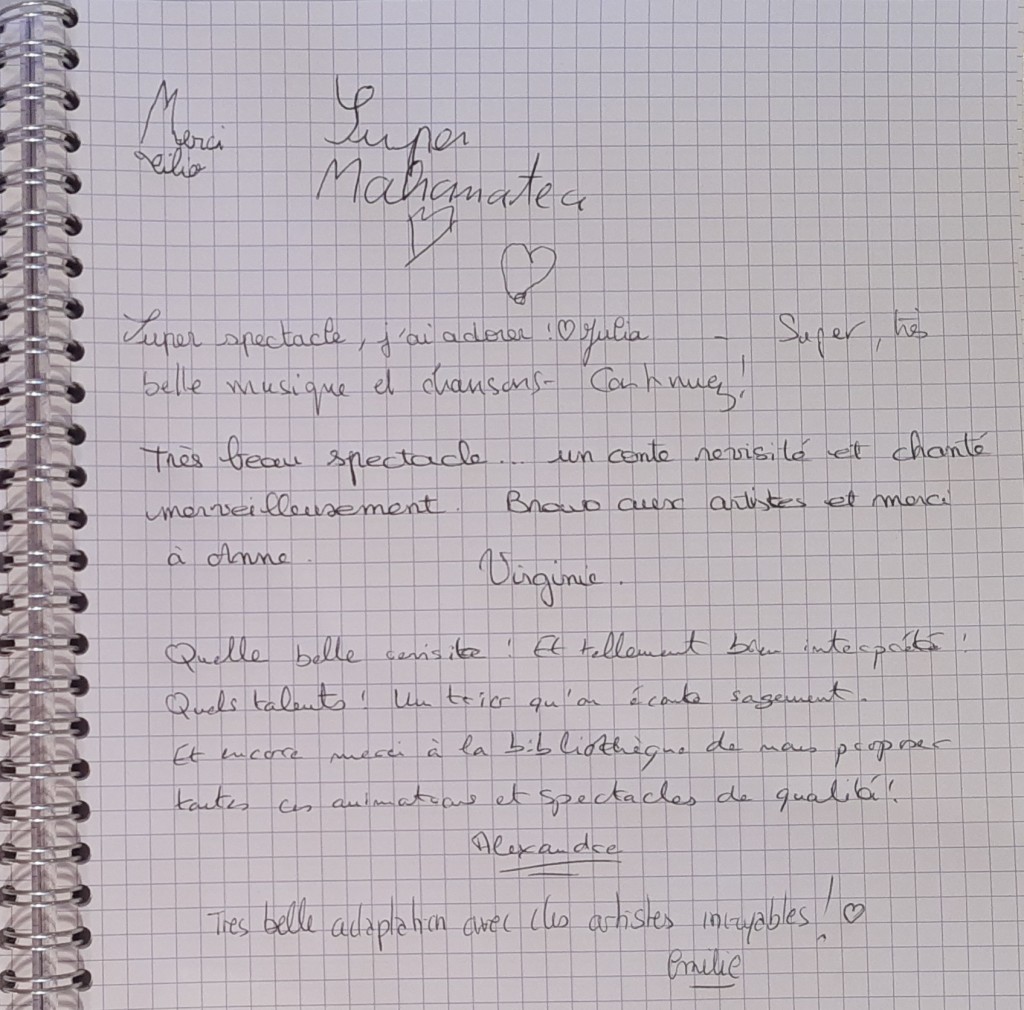 Merci
Super
Mahamatea
Super spectacle, j'ai adorer ! ♡ Julia - Super, très
belle musique et chansons - Continuez !
Très beau spectacle... un conte revisité et chanté
merveilleusement. Bravo aux artistes et merci
à Anne.
Virginie.
Quelle belle ! Et tellement bien !
Quels talents ! Un trio qu'on écoute sagement.
Et encore merci à la bibliothèque de nous proposer
toutes ces animations et spectacles de qualité !
Alexandre
Tres belle adaptation avec des artistes incroyables ! ♡
Emilie